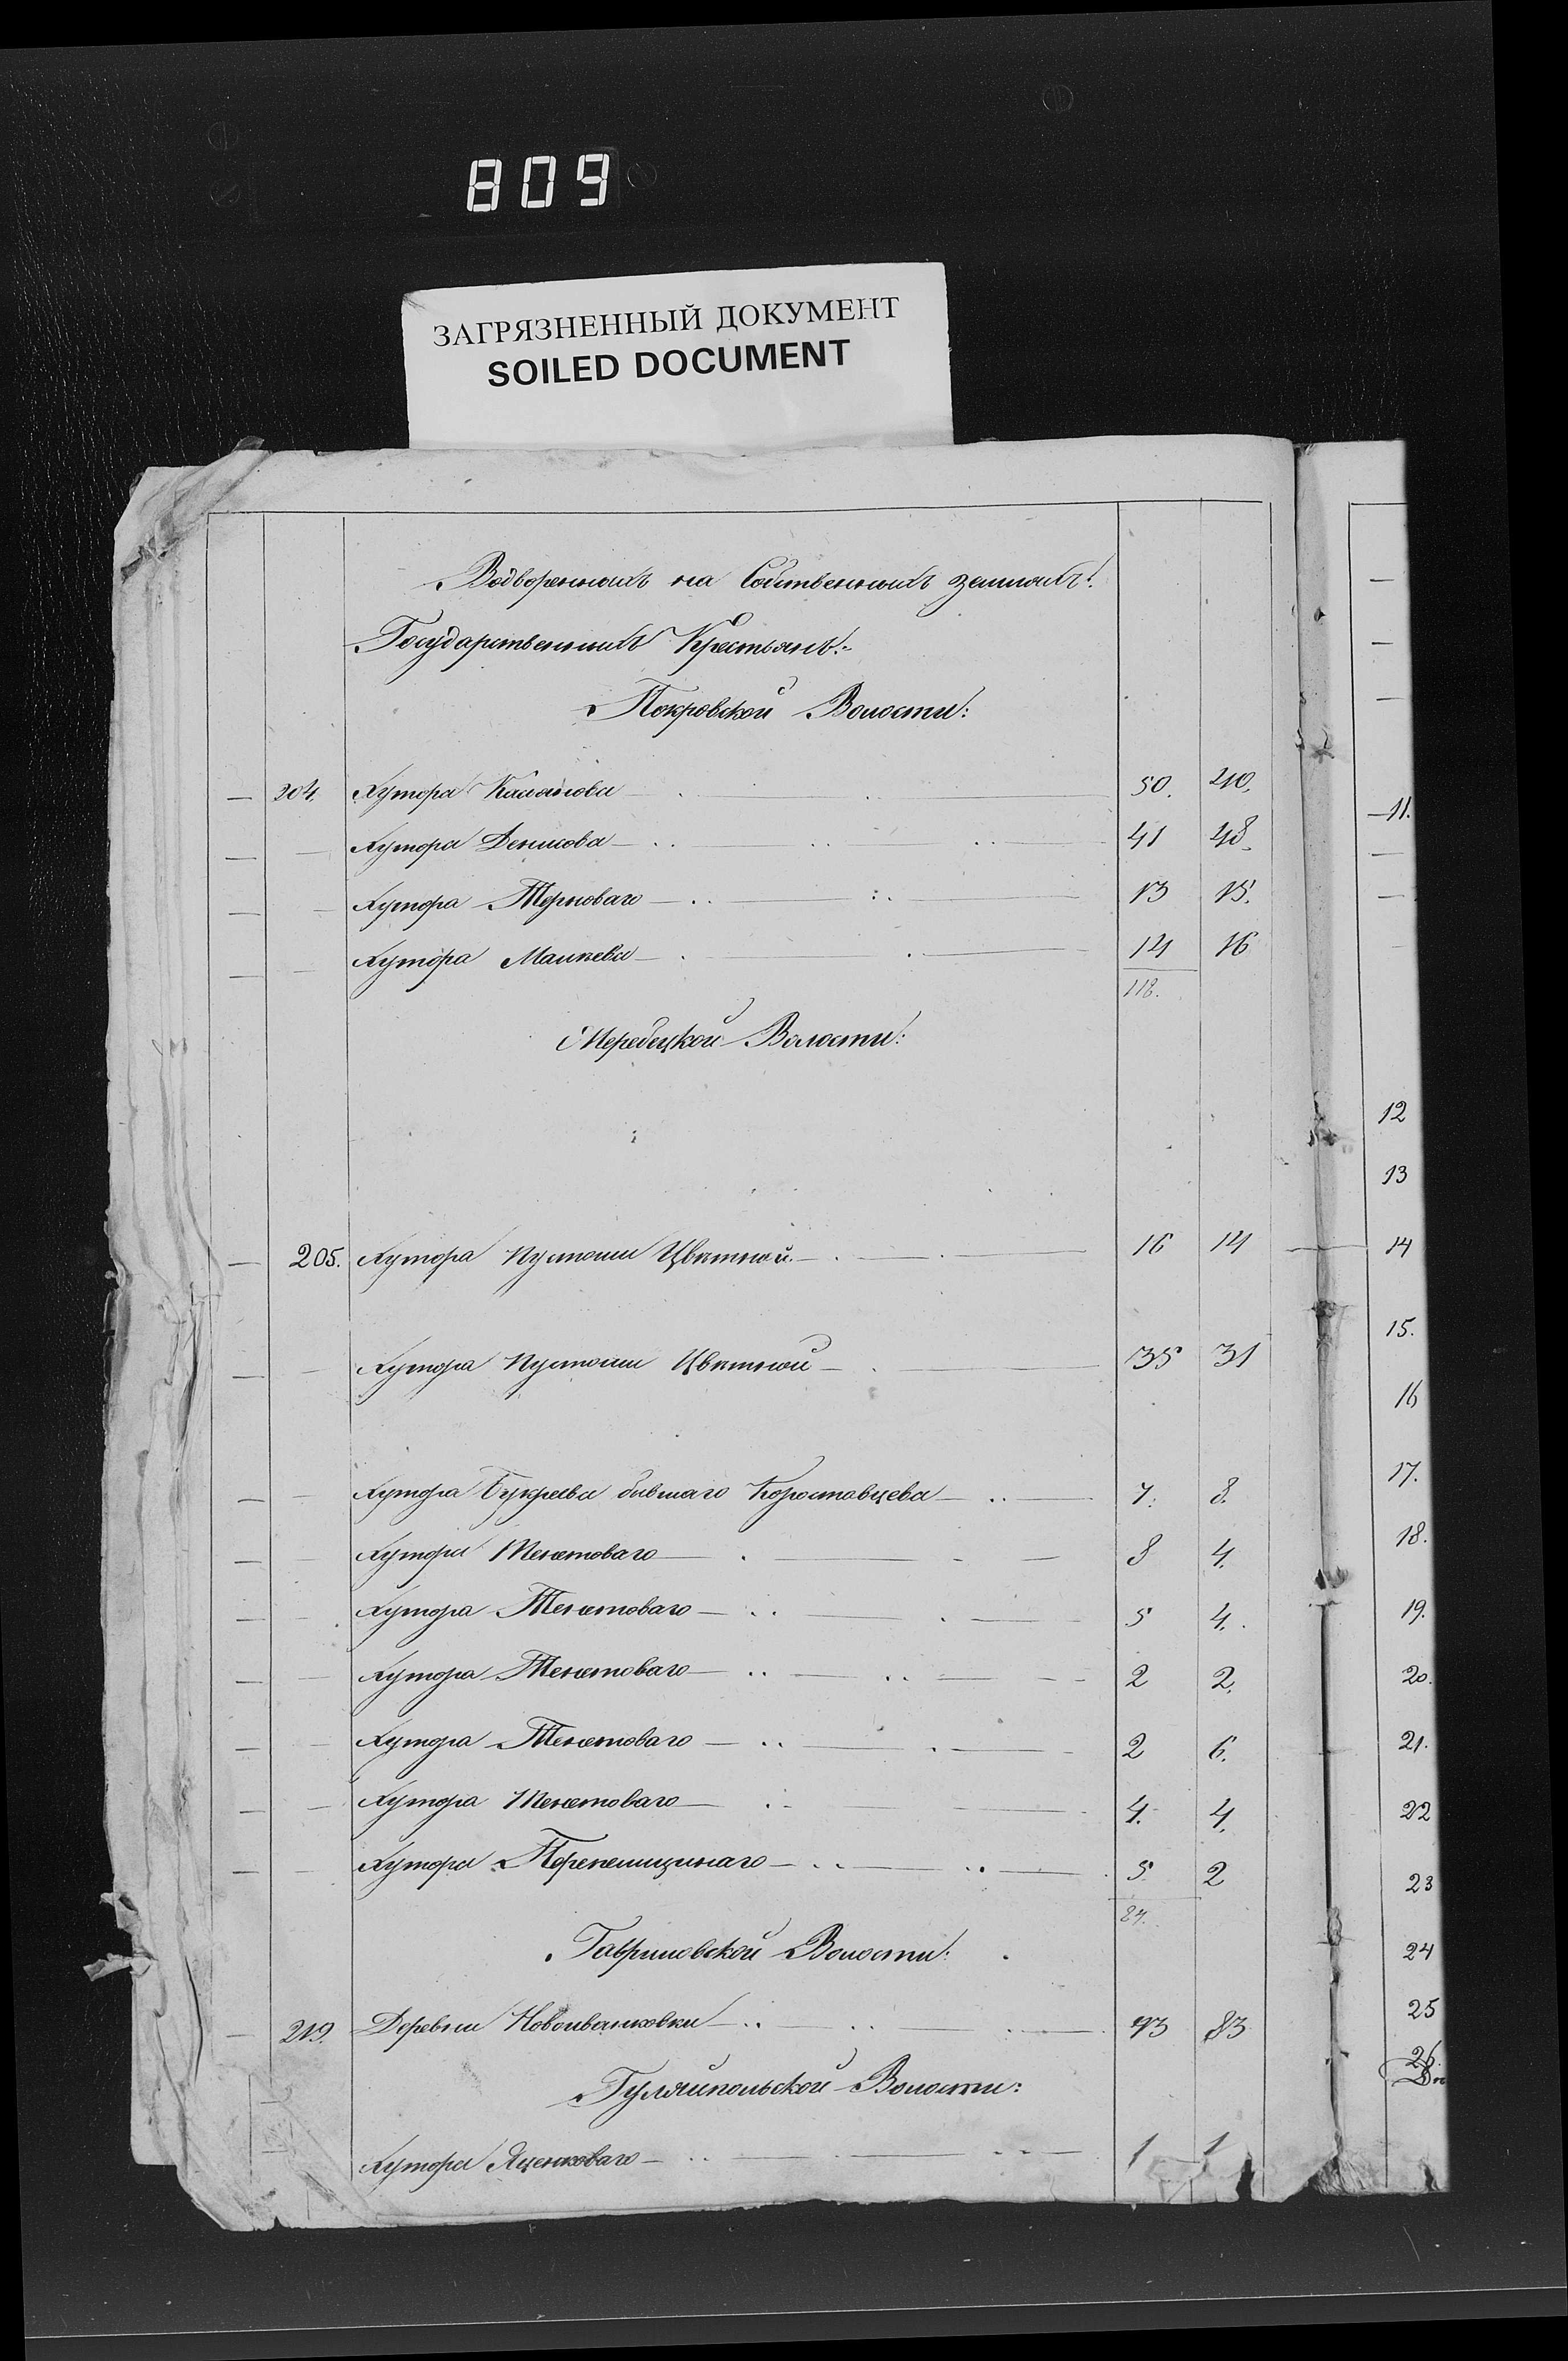 809
ЗАГРЯЗНЕННЫЙ ДОКУМЕНТ
SOILED DOCUMENT
Водворенныхъ на Собственныхъ земляхъ:
Государственныхъ Крестьянъ:
Покровской Волости:
— 204. Хутора 50. 40.
— — Хутора Денисова 41 48.
— — Хутора Терноваго 13 15.
— — Хутора 14 16
118.
Волости:
— 205. Хутора Пустоши Цвѣтной 16 14
— — Хутора Пустоши Цвѣтной 35 31
— — Хутора Букреева бывшаго Коростовцева 7. 8.
— — Хутора Тенетоваго 8 4.
— — Хутора Тенетоваго 5 4.
— — Хутора Тенетоваго 2 2.
— — Хутора Тенетоваго 2 6.
— — Хутора Тенетоваго 4. 4.
— — Хутора Перепелицинаго 5 2
84.
Гавриловской Волости:
— 219. Деревни Новоивановки 93 83
Гуляйпольской Волости:
Хутора Яценковаго 1 1
11.
12
13
14
15.
16
17.
18.
19.
20.
21.
22
23
24
25
26.